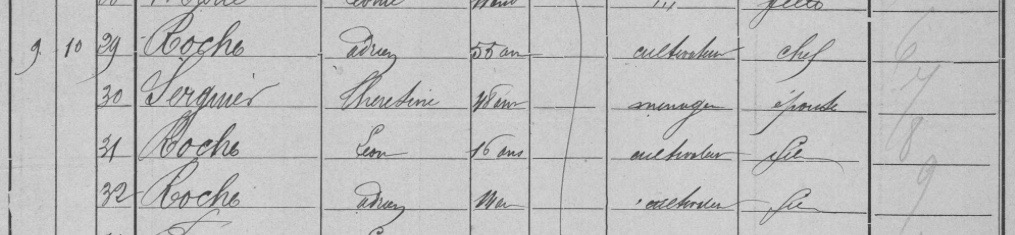 9 10 29 Roche adrien 55 ans cultivateur chef 6
30 Serguier Theresine ménagère épouse 7
31 Roche Leon 16 ans cultivateur fils 8
32 Roche adrien cultivateur fils 9